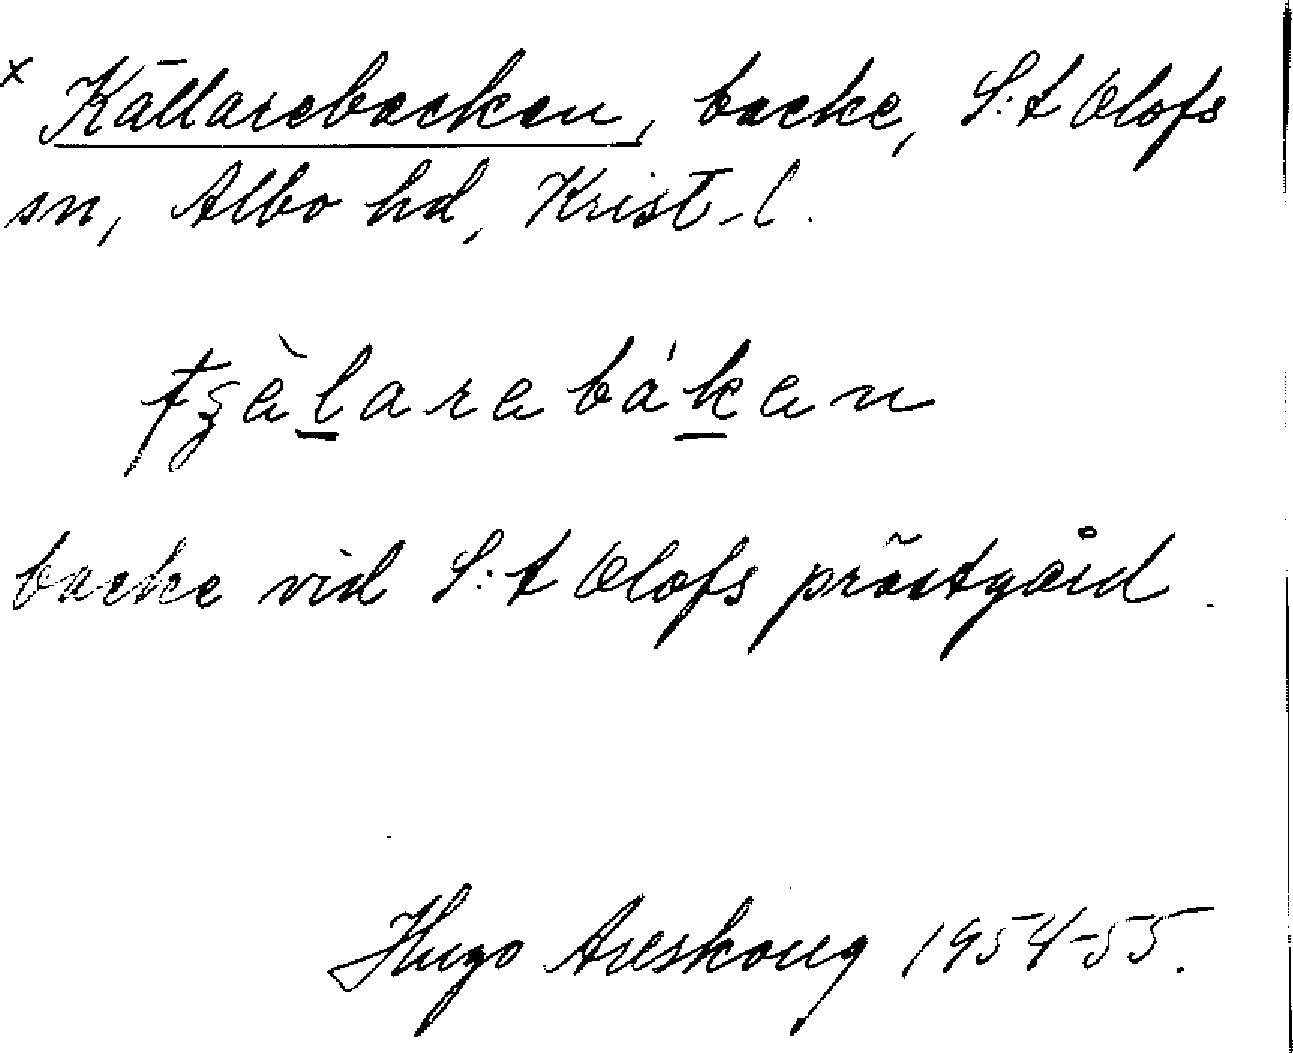 x Källarebacken, backe, S:t Olofs
sn, Albo hd, Krist-l.
backe vid S:t Olofs prästgård.
Hugo Areskoug 1954-55.